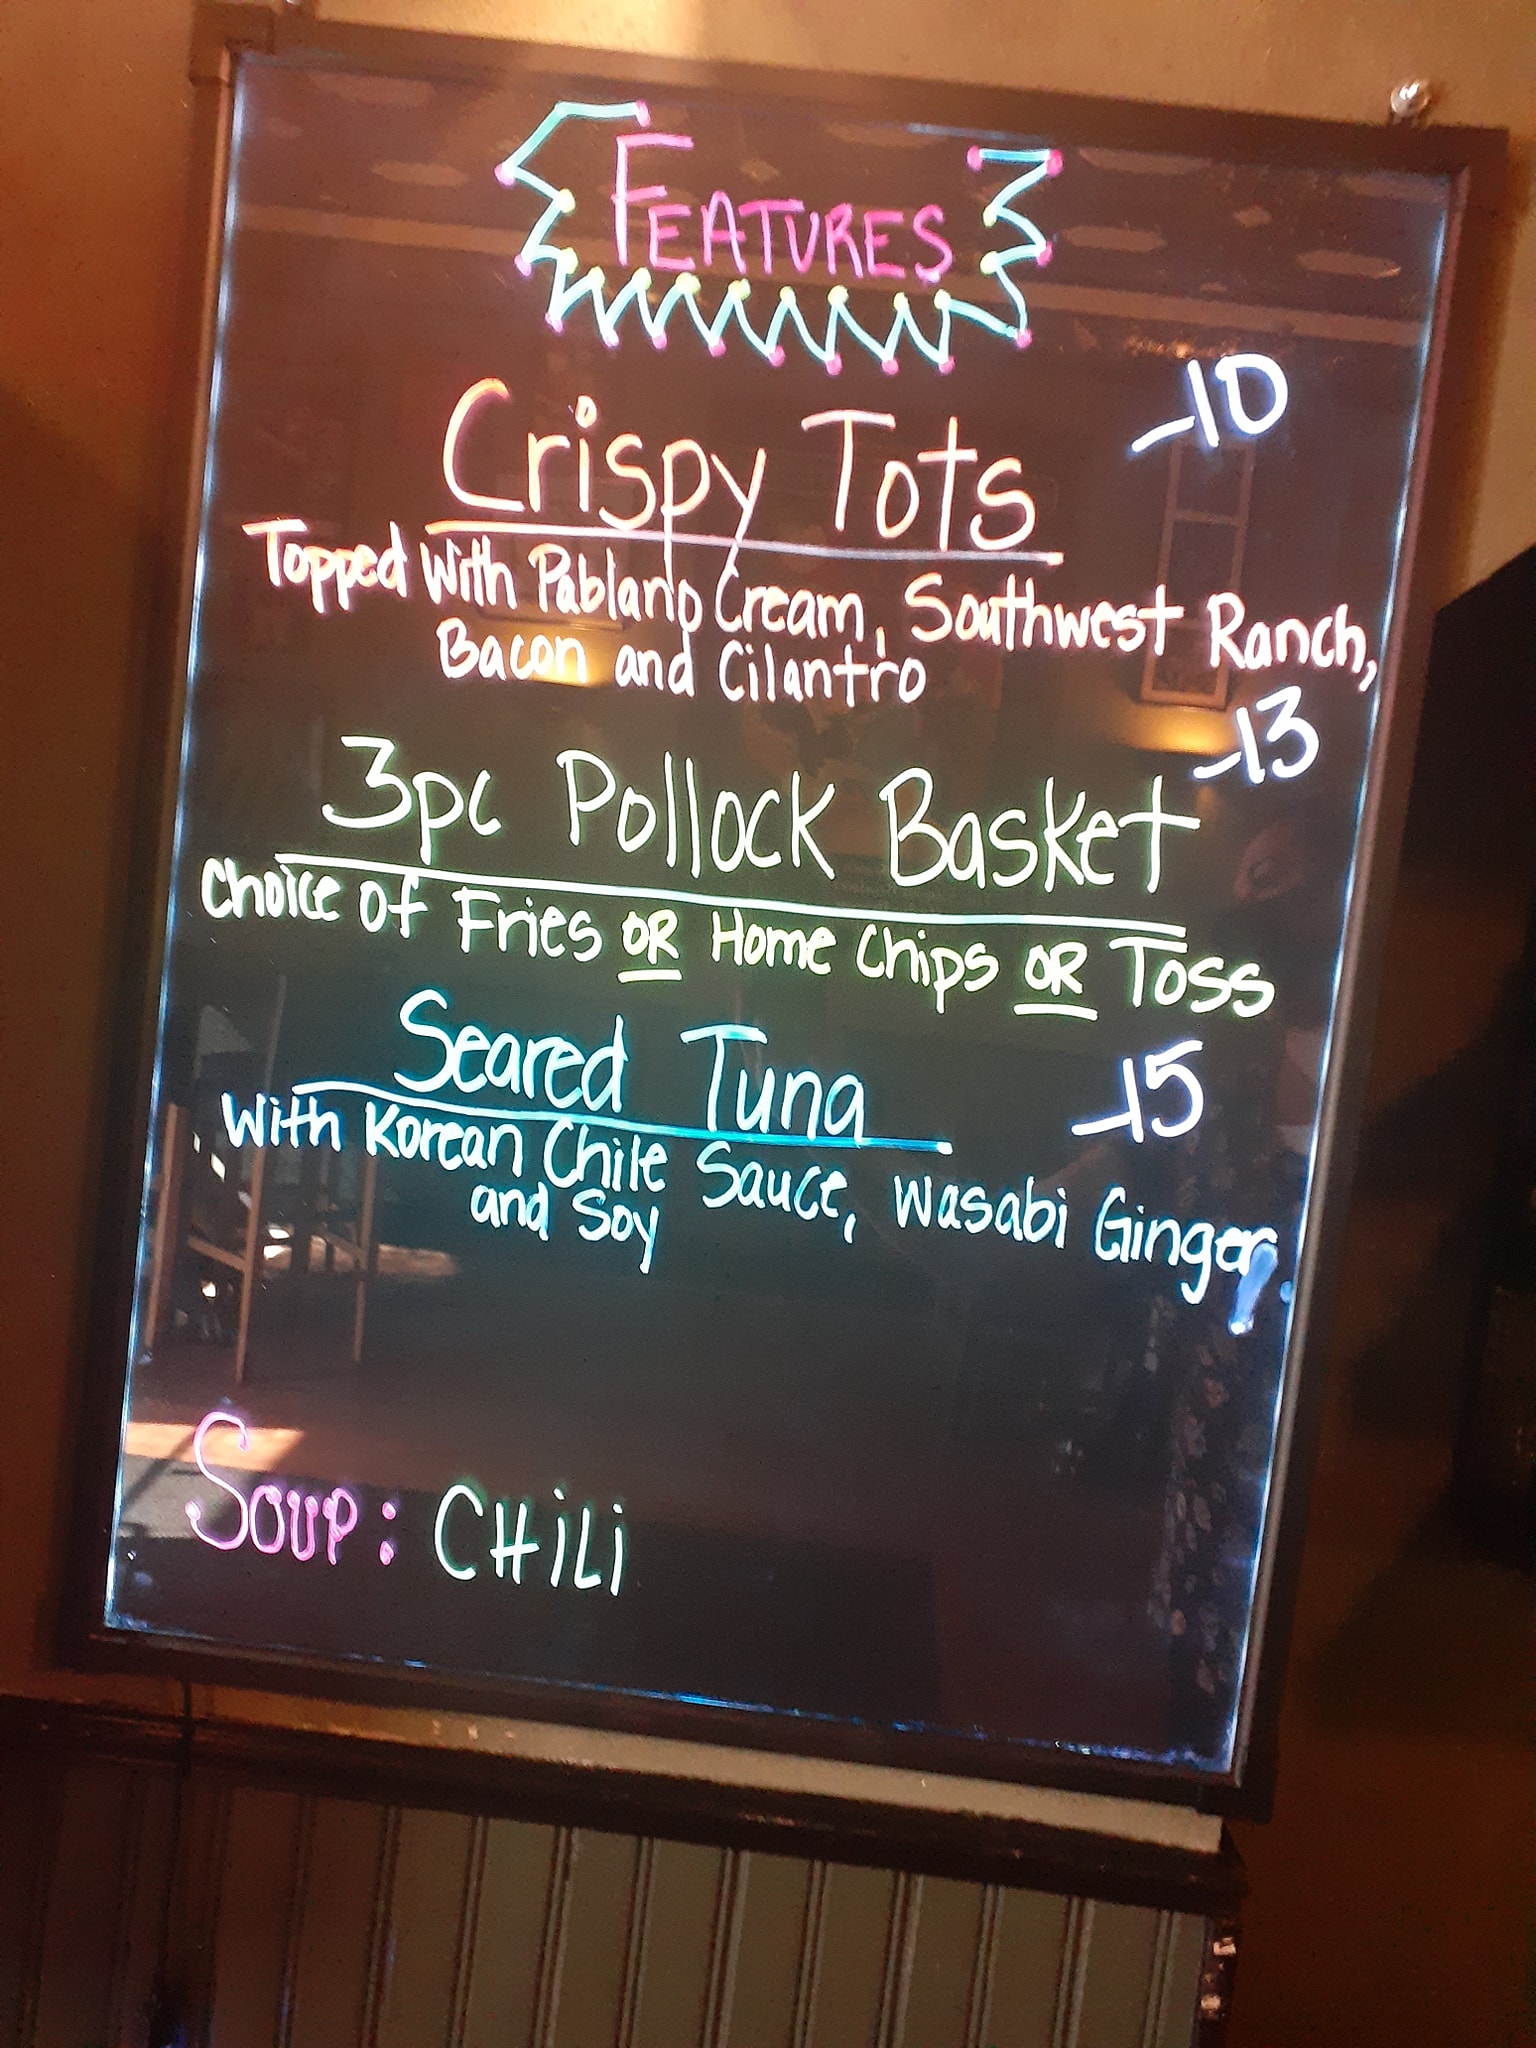 FEATURES
Crispy Tots -10
Topped With Pablano Cream, Southwest Ranch,
Bacon and Cilantro
3pc Pollock Basket -13
Choice of Fries OR Home Chips OR Toss
Seared Tuna -15
With Korean Chile Sauce, Wasabi Ginger,
and Soy
Soup: CHiLi